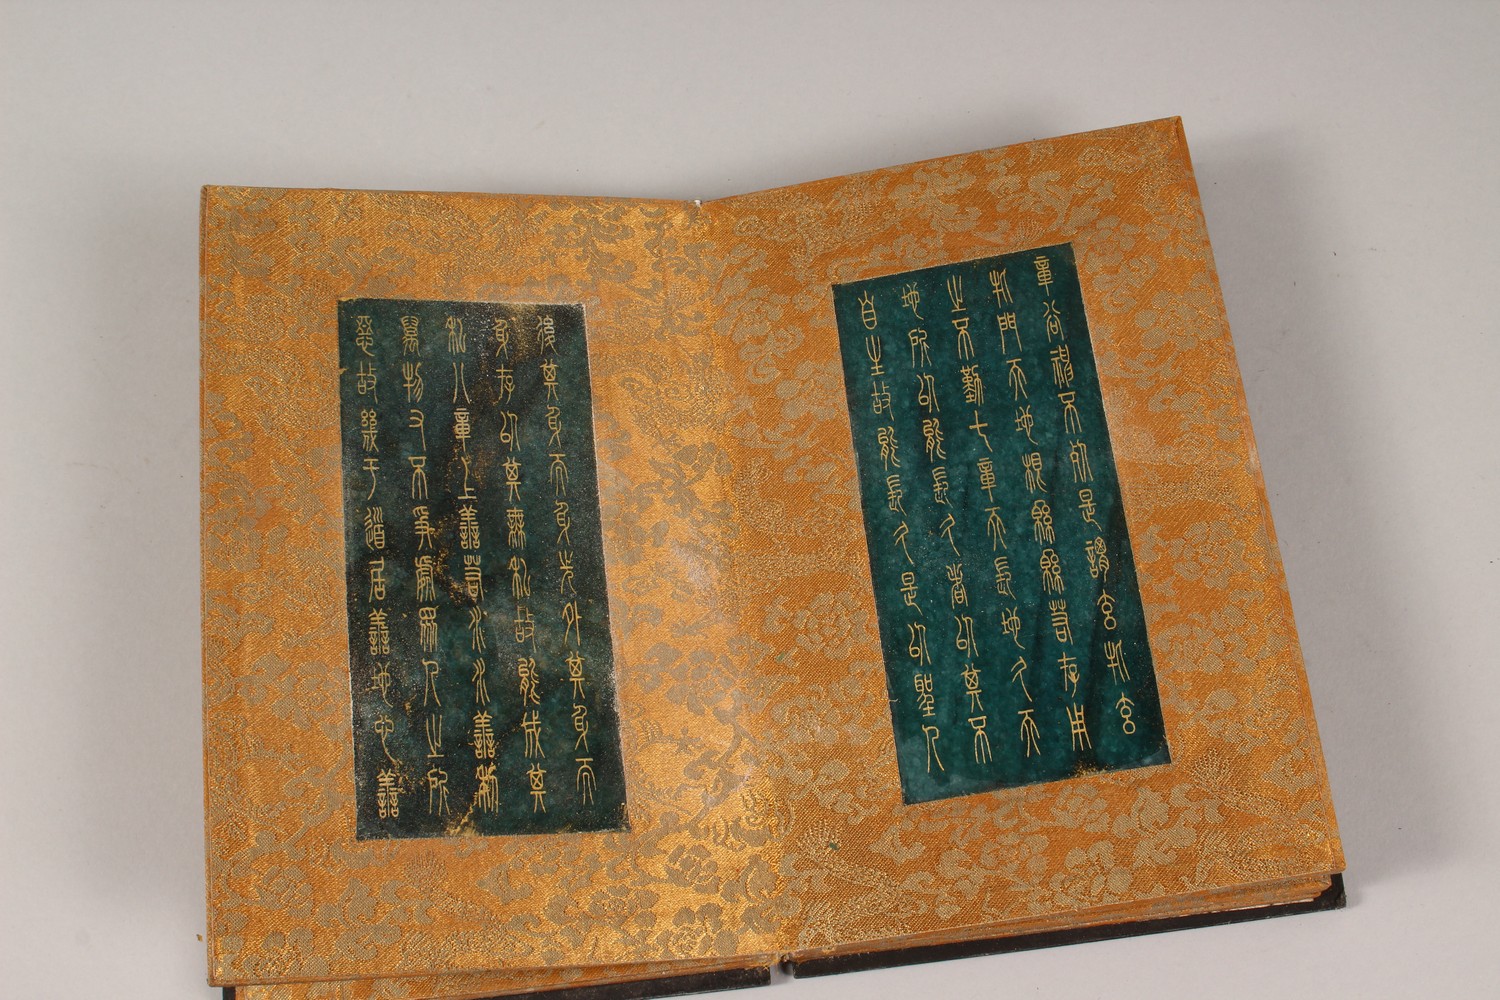 章谷神不死是謂玄牝玄
牝門天地根緜緜若存用
之不勤七章天長地久天
地所以能長久者以其不
自生故能長久是以聖人
後其身而身先外其身而
身存以其無私故能成其
私八章上善若水水善利
萬物又不爭處眾人之所
惡故幾于道居善地心善